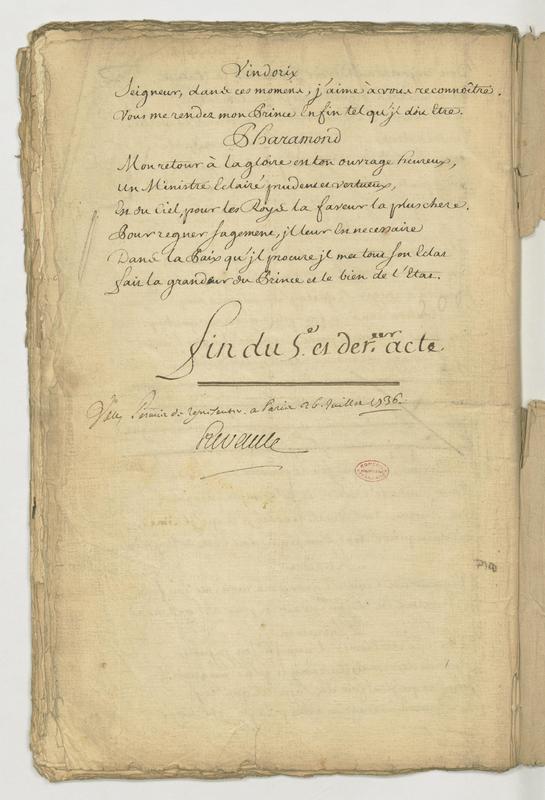 Vindorix
Seigneur, dans ces momens, j'aime à vous reconnoître.
Vous me rendez mon Prince Enfin tel qu'jl doit Etre.
Pharamond
Mon retour à la gloire est ton ouvrage heureux,
Un Ministre Eclairé prudent et vertueux,
Est du Ciel, pour les Roys la faveur la plus chere.
Pour regner sagement, jl leur Est necessaire
Dans la Paix qu'jl procure jl met tout son Eclat
fait la grandeur du Prince et le bien de l'Etat.
fin du 5.e et der.nier acte.
Veu, Permis de représenter. a Paris 26 Juillet 1736.
COMÉDIE FRANÇAISE